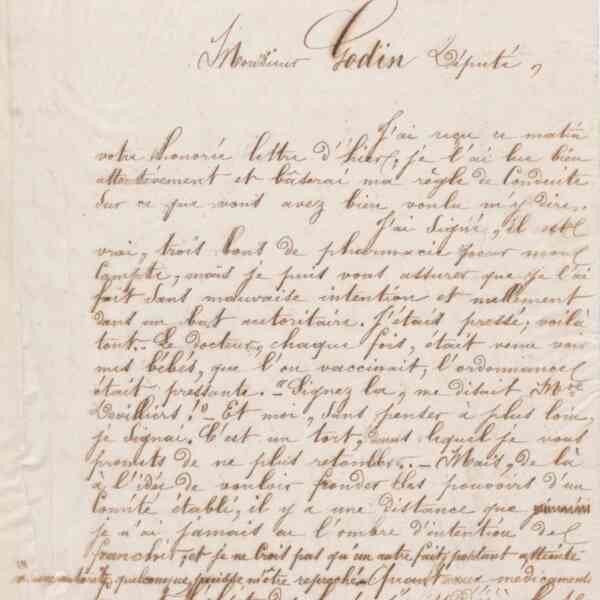 Monsieur Godin Député,
J'ai reçu ce matin
votre honorée lettre d'hier, je l'ai lue bien
attentivement et bâserai ma règle de Conduite
sur ce que vous avez bien voulu m'y dire.
J'ai signé, il est
vrai, trois bons de pharmacie pour mon
Compte, mais je puis vous assurer que je l'ai
fait sans mauvaise intention et nullement
dans un but autoritaire. J'étais pressé, voilà
tout.. Le docteur, chaque fois, était venu voir
mes bébés, que l'on vaccinait, l'ordonnance
était pressante. "Signez la, me disait Mme
Devilliers!" Et moi, sans penser à plus loin,
je signai. C'est un tort, dans lequel je vous
promets de ne plus retomber.. — Mais, de là
à l'idée de vouloir fronder les pouvoirs d'un
Comité établi, il y a une distance que
je n'ai jamais eu l'ombre d'intention de
franchir, et je ne crois pas qu'un autre fait, portant atteinte
à une autorité quelconque, puisse m'être reproché. Quant aux médicaments